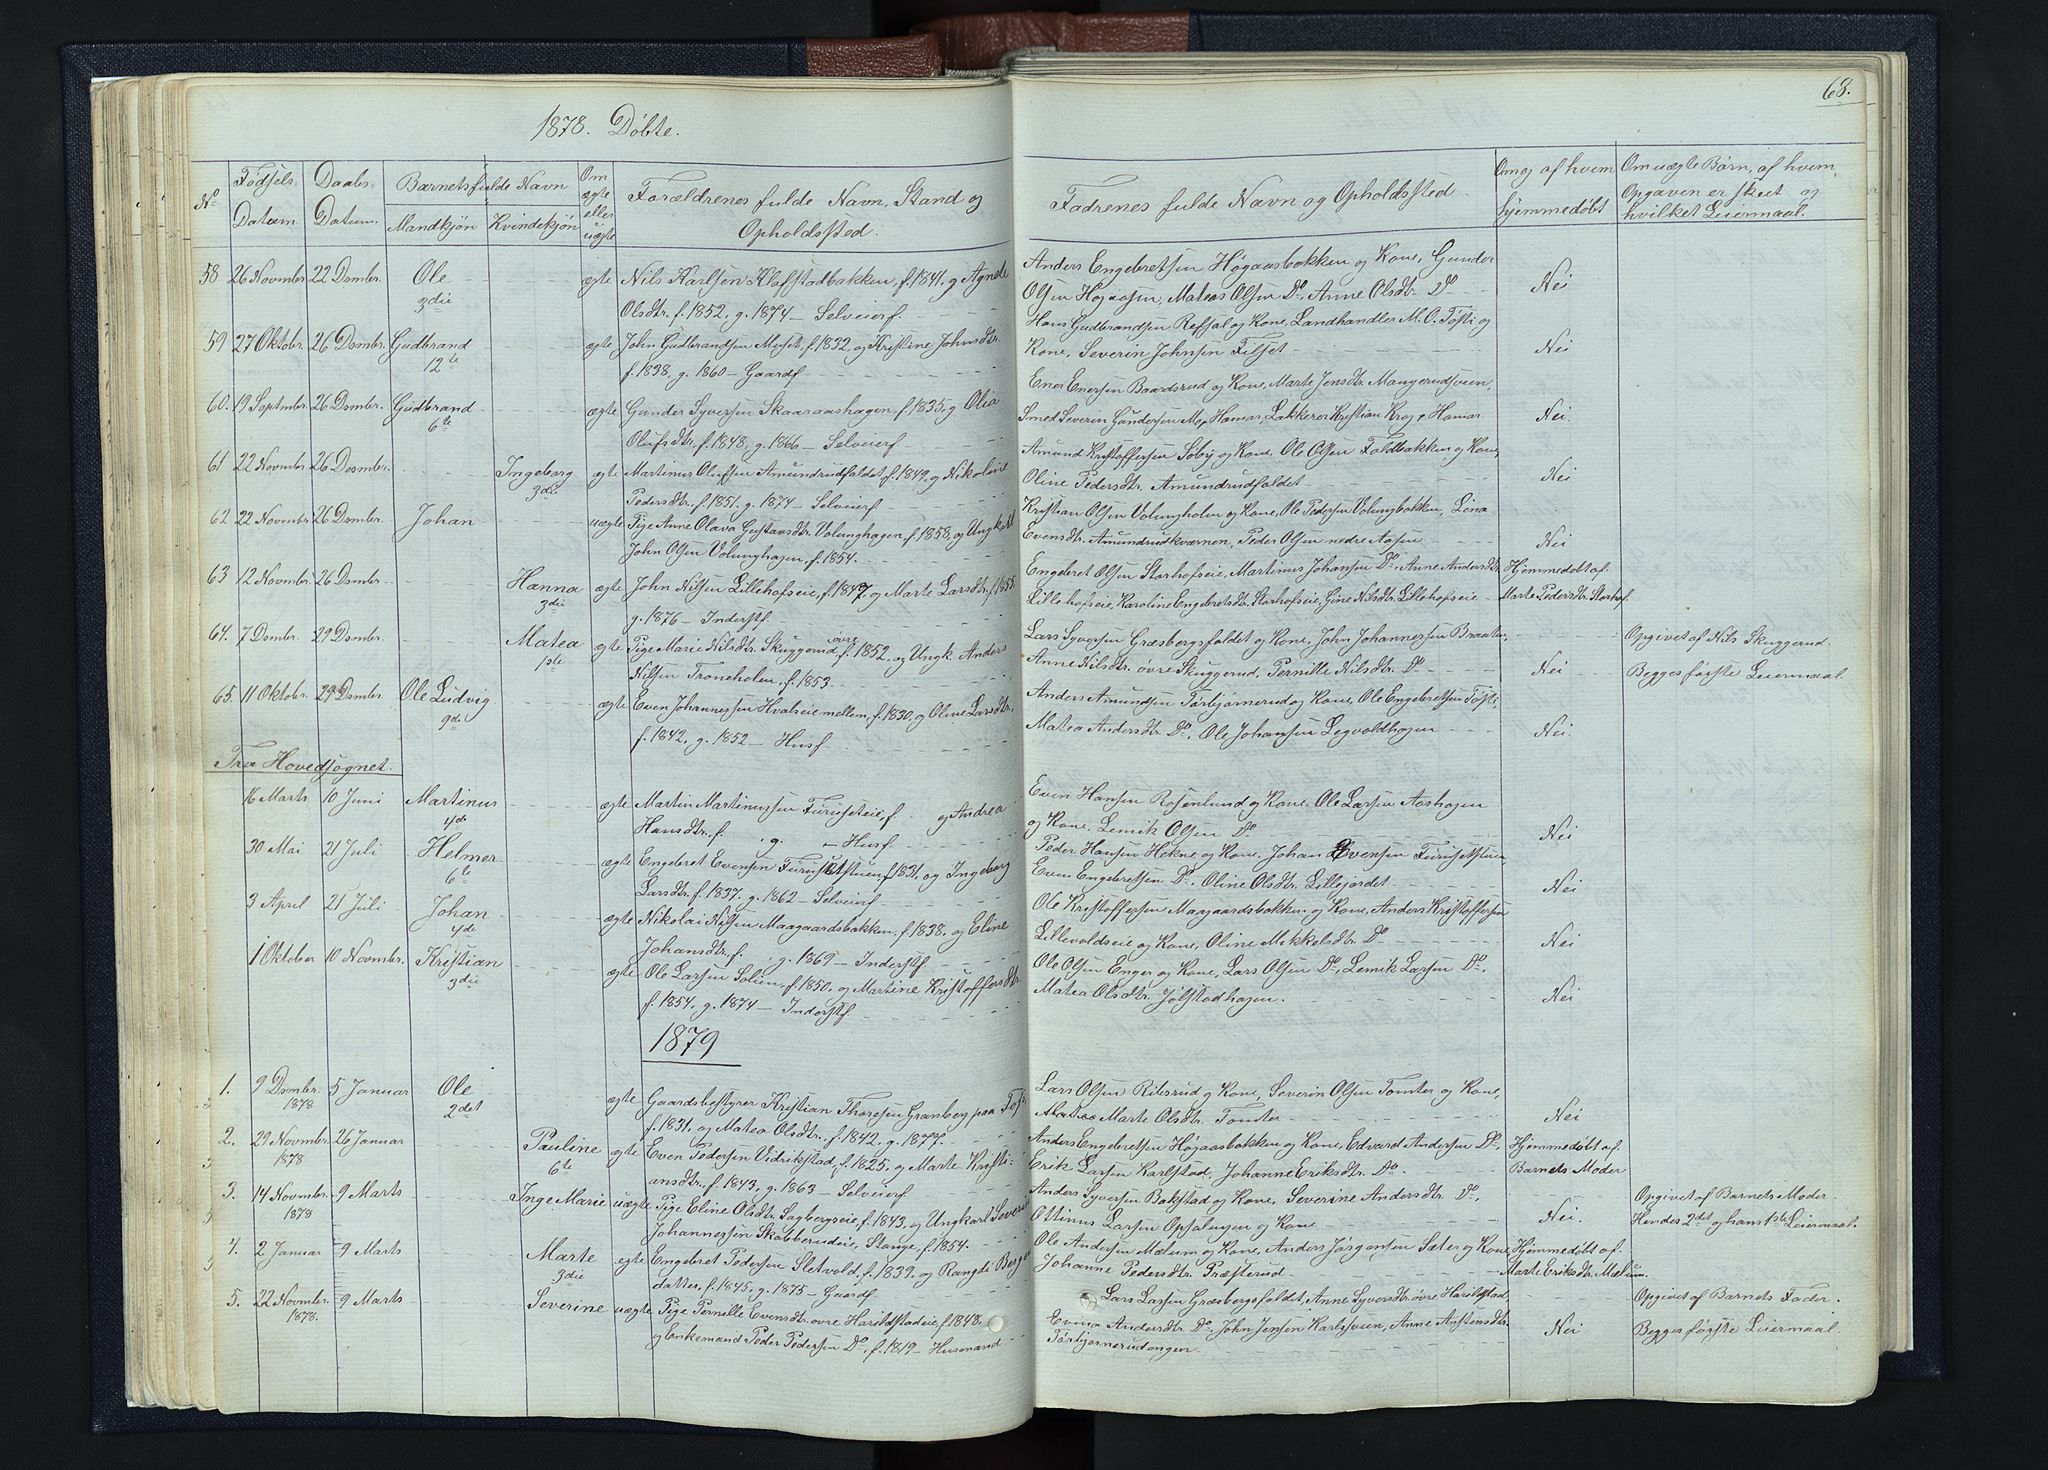 68.
1878. Döbte.
No
Födsels-Datum
Daabs-Datum.
Barnets fulde Navn
Mandkjön
Kvindekjön
Om ægte eller uægte
Forældrenes fulde Navn, Stand og Opholdsted.
Fadrenes fulde Navn og Opholdssted
Om og af hvem hjemmedöbt
Om uægte Börn, af hvem Opgaven er skeet og hvilket Leiermaal.
58 26 Novmbr 22 Dsmbr. Ole 3die ægte
Nils Karlsen Klofstadbakken, f. 1841. g Agnete
Olsdtr. f. 1852, g. 1874 — Selveierf.
Anders Engebretsen Högaasbakken og Kone, Gunder
Olsen Högaasen, Mateas Olsen Do, Anne Olsdtr. Do
Nei
59 27 Oktobr. 26 Dsmbr. Gudbrand 12te ægte
John Gudbrandsen Muset, f. 1832, og Kristine Johnsdtr.
f. 1838, g. 1860 — Gaardf
Hans Gudbrandsen Refsal og Kone, Landhandler M. O. Tofti og
Kone, Severin Johnsen Filset
Nei
60. 19 Septmbr. 26 Dsmbr. Gudbrand 6te ægte
Gunder Syversen Skaaraashagen, f. 1835, g Olia
Olufsdtr. f. 1848, g. 1866 — Selveierf
Ener Enersen Baardsrud og Kone, Marte Jensdtr. Mangerudsveen,
Smed Severin Gundersen Hamar, Lakkerer Kristian Krog, Hamar
Nei
61 22 Novmbr 26 Desmbr. Ingeborg 3die ægte
Martinus Olufsen Amundrudfaldet f. 1849. og Nikoline
Pedersdtr. f. 1851. g. 1874 — Selveierf
Amund Kristoffersen Soby og Kone, Ole Olsen Foldbakken og Kone,
Oline Pedersdtr. Amundrudfaldet
Nei
62 22 Novmbr 26 Dsmbr. Johan uægte
Pige Anne Olava Gustavsdtr. Volunghagen, f. 1858, og Ungkarl
John Olsen Volunghagen, f. 1854.
Kristian Olsen Volungholen og Kone, Ole Pedersen Volungbakken, Lina
Evensdtr. Amundrudkværnen, Peder Olsen nedre Aasen
Nei
63 12 Novmbr. 26 Dsmbr. Hanna 3die ægte
John Nilsen Lillehofseie, f. 1847, og Marte Larsdtr. f. 1855.
g. 1876 — Inderstf.
Engebret Olsen Storhofseie, Martinus Johansen Do, Anne Andersdtr.
Lillehofseie, Karoline Engebretsdtr. Storhofseie, Gine Nilsdtr. Lillehofseie
Hjemmedöbt af
Marte Pedersdtr. Storhof.
64. 7 Dsmbr. 29 Dsmbr. Matea 1ste ægte
Pige Marie Nilsdtr. Skuggerud övre f. 1852, og Ungk. Anders
Nilsen Troneholen, f. 1853.
Lars Syversen Græsbergsfaldet og Kone, John Johannessen Braaten,
Anne Nilsdtr. övre Skuggerud, Pernille Nilsdtr. Do
Nei
Opgivet af Nils Skuggerud.
Begges förste Leiermaal.
65. 11 Oktobr. 29 Dsmbr. Ole Ludvig 9de ægte
Even Johannessen Hvalseie mellem, f. 1830, og Oline Larsdtr.
f. 1842, g. 1852 — Husf
Anders Amundsen Torbjörnerud og Kone, Ole Engebretsen Tofti,
Matea Andersdtr. Do, Ole Johansen Legvoldhagen
Nei.
Fra Hovedsognet.
16 Marts 10 Juni Martinus 4de ægte
Martin Martinussen Furuseteie, f. og Andrea
Hansdtr. f. , g. — Husf
Even Hansen Rosenlund og Kone, Ole Larsen Aashagen
og Kone, Lemik Olsen Do
Nei
30 Mai 21 Juli Helmer 6te ægte
Engebret Evensen Furusetstuen f. 1831. og Ingeborg
Larsdtr. f. 1837. g. 1862 — Selveierf.
Peder Hansen Hekne og Kone, Johan Evensen Furusetstuen
Even Engebretsen Do, Oline Olsdtr. Lillejordet
Nei
3 April 21 Juli Johan 4de ægte
Nikolai Nilsen Maagaardsbakken, f. 1838, og Eline
Johansdtr. f. , g. 1869 — Inderstf
Ole Kristoffersen Maagaardsbakken og Kone, Anders Kristoffersen
Lillevoldseie og Kone, Oline Mikkelsdtr. Do
Nei
1 Oktober 10 Novmbr. Kristian 3die ægte
Ole Larsen Solien, f. 1850, og Martine Kristoffersdtr.
f. 1854, g. 1874 — Inderstf
Ole Olsen Enger og Kone, Lars Olsen Do, Lemik Larsen Do,
Matea Olsdtr. Jölstadhagen.
Nei
1879
1. 9 Dsmbr. 1878 5 Januar Ole 2det ægte
Gaardsbestyrer Kristian Thoresen Granberg paa
f. 1831, og Matea Olsdtr. f. 1842, g. 1877.
Lars Olsen Rilesrud g Kone, Severin Olsen Tomter og Kone,
Marte Olsdtr. Tomter
Nei
2. 29 Novmbr. 1878 26 Januar Pauline 6te ægte
Even Pedersen Vidrikstad, f. 1825, og Marte Kristi-
ansdtr., f. 1843, g. 1863 — Selveierf
Anders Engebretsen Högaasbakken og Kone, Edvard Andersen Do,
Erik Larsen Karlstad, Johanne Eriksdtr. Do
Hjemmedöbt af
Barnets Moder
3. 14 Novmbr. 1878 9 Marts Inge Marie uægte
Pige Eline Olsdtr. Sagbergseie, f. 1843, og Ungkarl Severin
Johannessen Skabberudeie, Stange, f. 1854.
Anders Syversen Bakstad og Kone, Severine Andersdtr. Do,
Ottinus Larsen Opsalengen og Kone
Nei.
Opgivet af Barnets Moder.
Hendes 2det og hans 1ste Leiermaal.
4. 2 Januar 9 Marts Marte 3die ægte
Engebret Pedersen Sletvold, f. 1839, og Rangdi Berge
datter, f. 1845, g. 1875 — Gaardf
Ole Andersen Mælum og Kone, Anders Jörgensen Sæter og Kone,
Johanne Pedersdtr. Præsterud
Hjemmedöbt af
Marte Eriksdtr. Mælum.
5. 22 Novmbr. 1878. 9 Marts Severine uægte
Pige Pernille Evensdtr. övre Harildstadeie, f. 1848.
og Enkemand Peder Pedersen Do, f. 1819 — Husmand
Lars Larsen Græsbergsfaldet, Anne Syversdtr. övre Harildstad,
Evina Andersdtr. Do, John Jensen Karlsveen, Anne Anstensdtr.
Torbjörnerudengen.
Nei
Opgivet af Barnets Fader.
Begges förste Leiermaal.